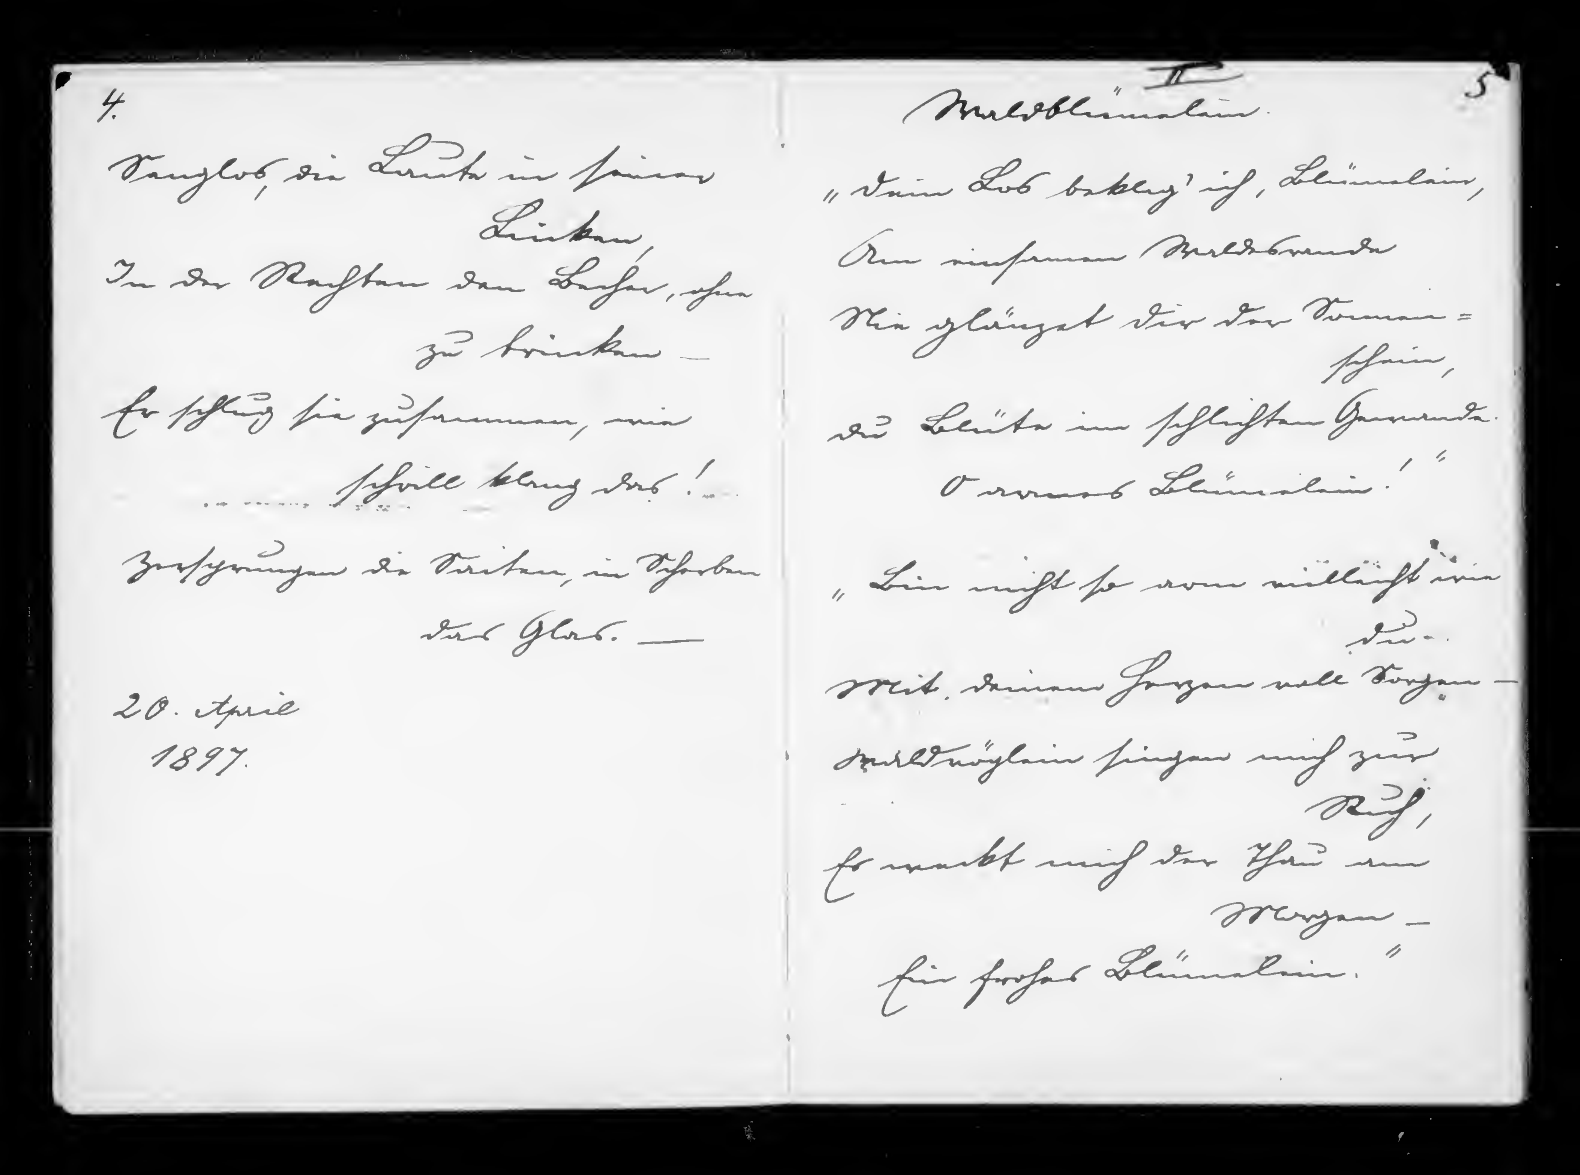 4.
Sanglos, die Laute in seiner
Linken,
In der Rechten den Becher, ohne
zu trinken —
Er schlug sie zusammen, wie
schrill klang das!
Zersprungen die Saiten, in Scherben
das Glas. —
20. April
1897.
II
5
Waldblümelein.
„Dein Los beklag' ich, Blümelein,
Am einsamen Waldesrande
Nie glänzet dir der Sonnen=
schein,
du Blüte im schlichten Gewande.
O armes Blümelein!"
„Bin nicht so arm vielleicht wie
du -
Mit deinem Herzen voll Sorgen —
Waldvöglein singen mich zur
Ruh,
Es weckt mich der Thau am
Morgen —
Ein frohes Blümelein."